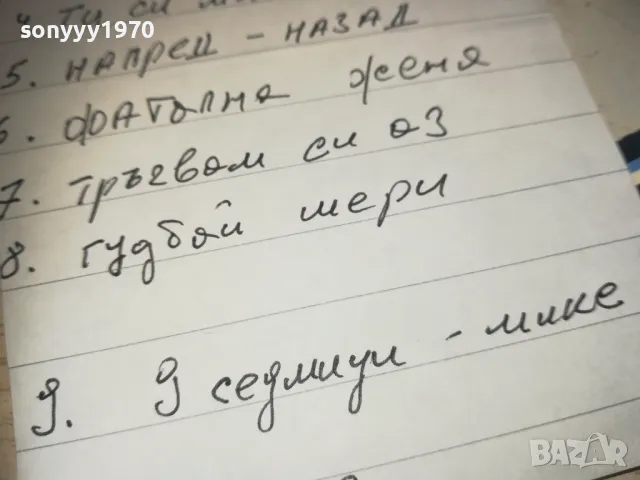 sonyyy1970
4. ти си
5. НАПРЕД - НАЗАД
6. ФАТАЛНА женя
7. тръгвам си аз
8. гудбай мери
9. 9 седмици - мике
BAZAR